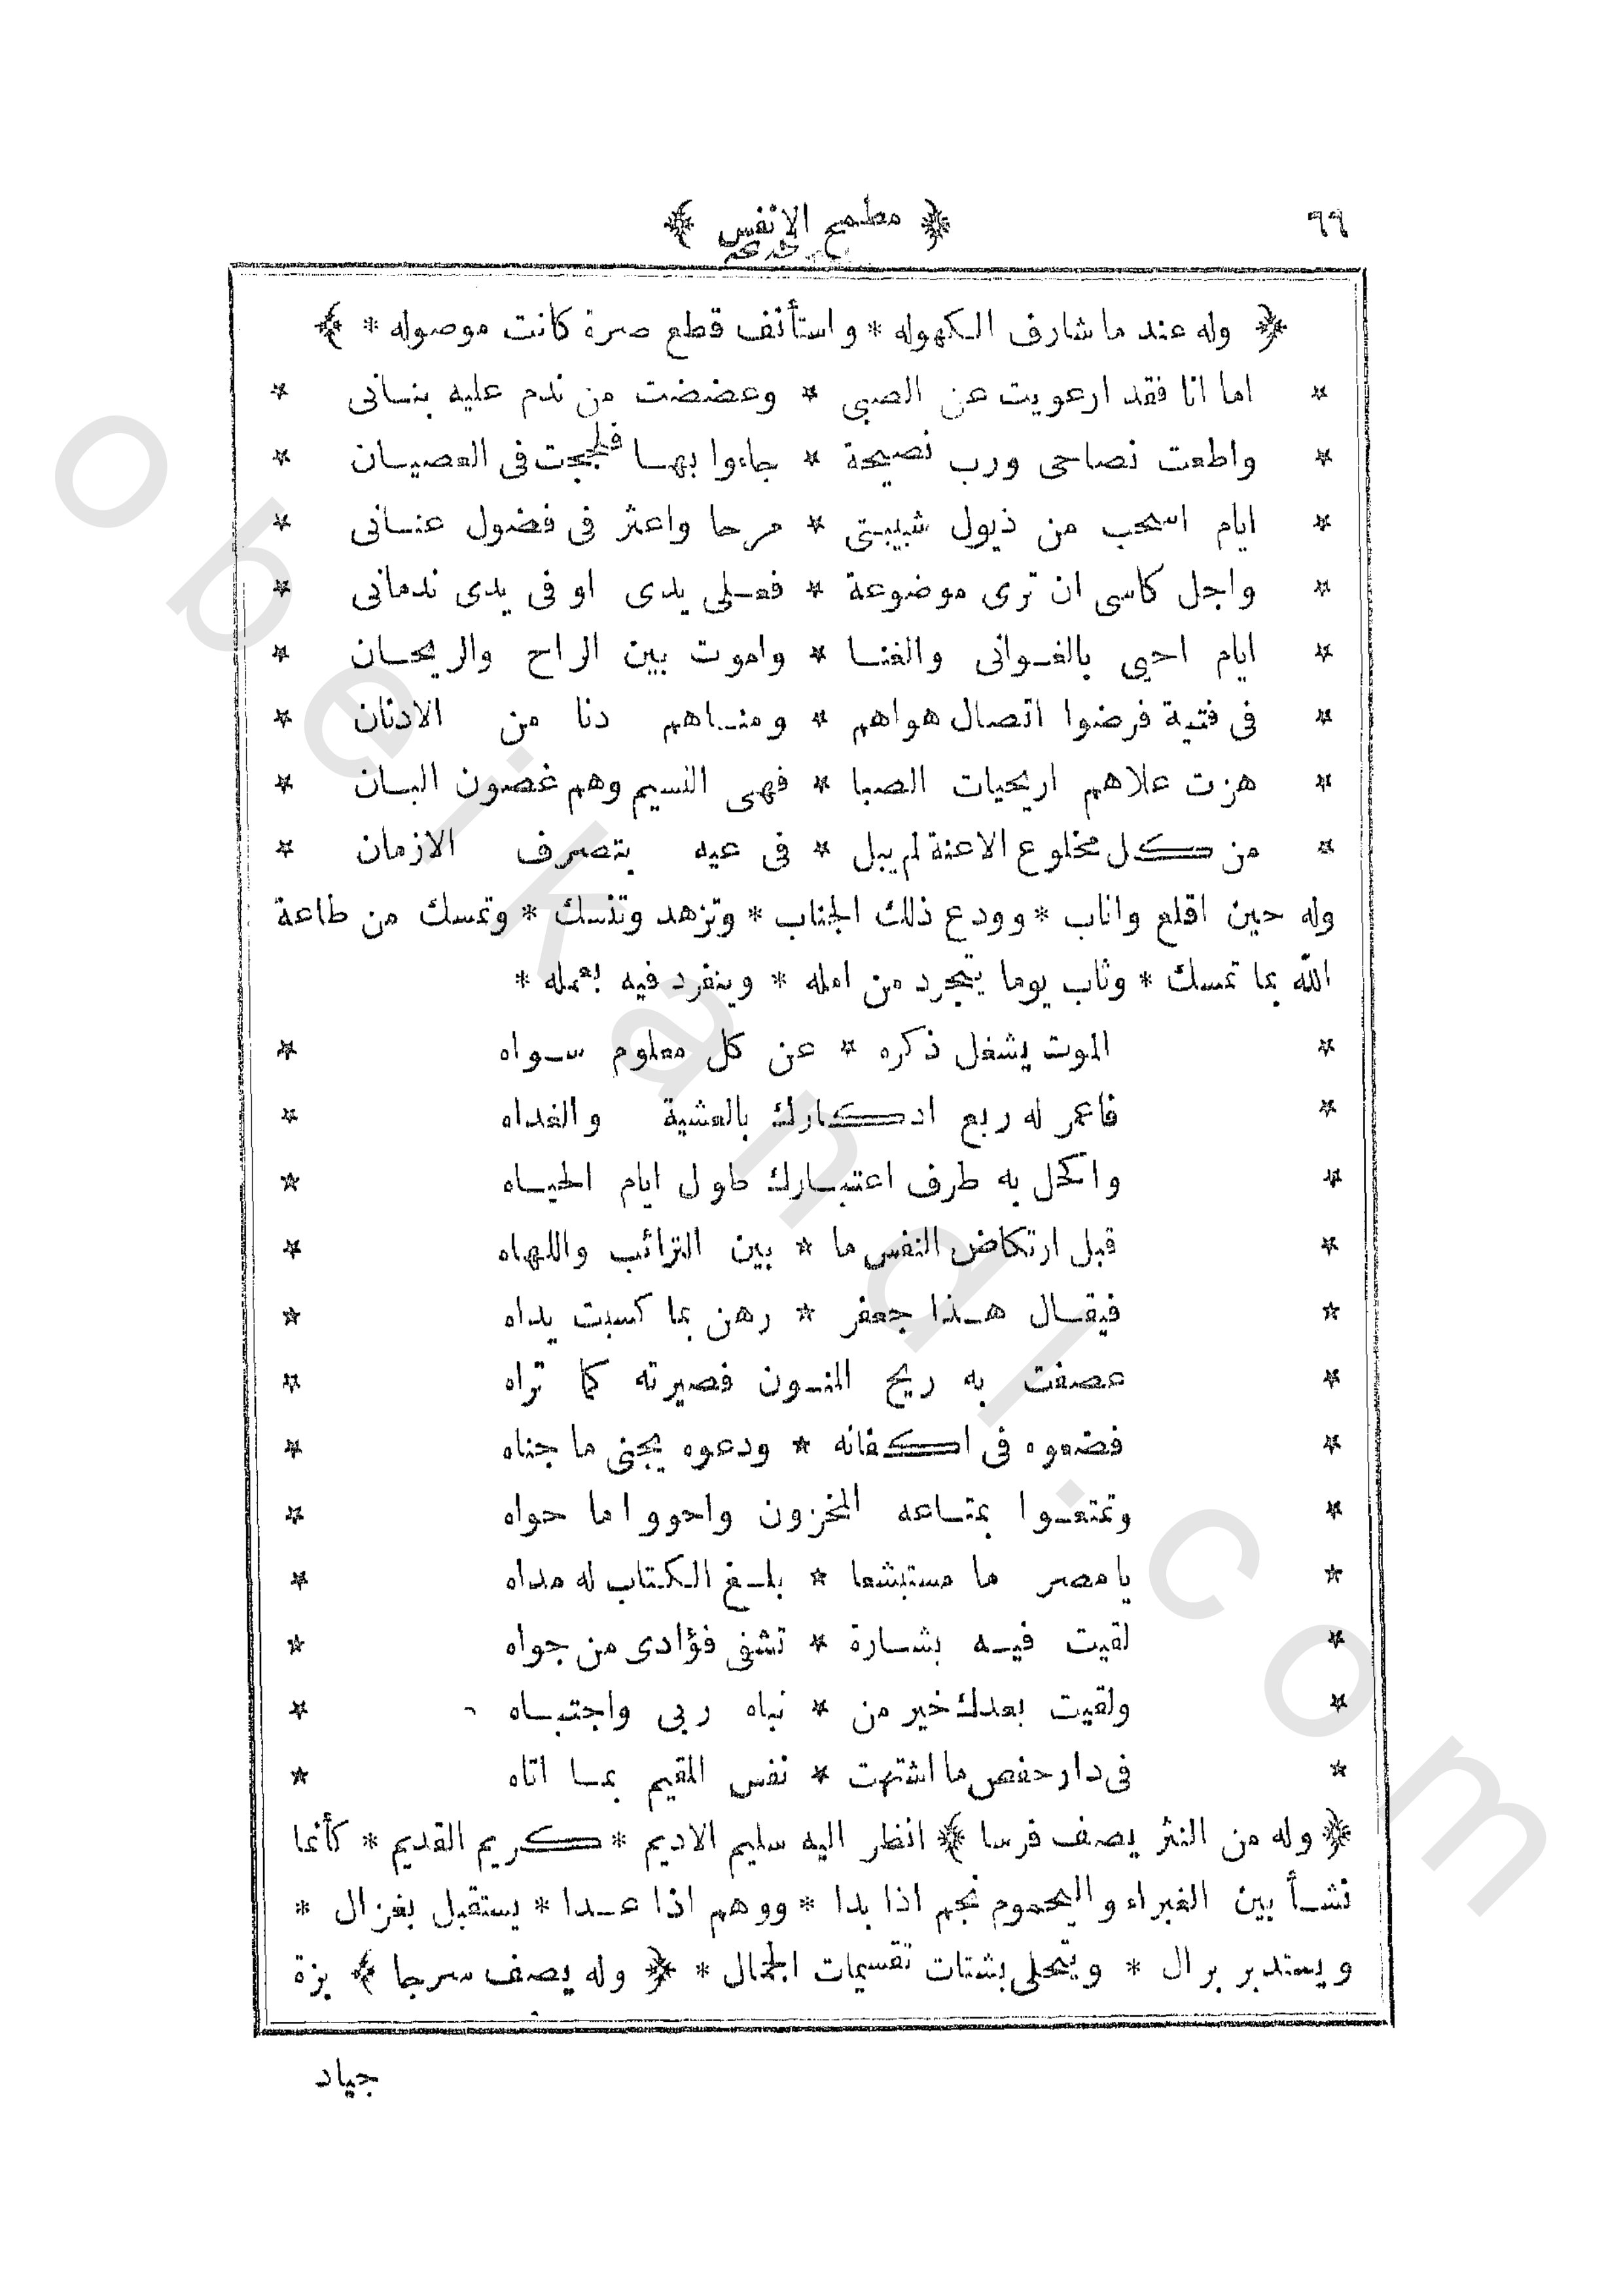 ٦٦ ﴿ مطمح الانفس ﴾
﴿ وله عند ما شارف الكهوله * واستأنف قطع صرة كانت موصوله * ﴾
* اما انا فقد ارعويت عن الصبى * وعضضت من ندم عليه بنسانى *
* واطعت نصاحى ورب نصيحة * جاءوا بها فلججت فى العصيان *
* ايام اسحب من ذيول شبيبتى * مرحا واعثر فى فضول عنانى *
* واجل كاسى ان ترى موضوعة * فعلى يدى او فى يدى ندمانى *
* ايام احيى بالغوانى والغنا * واموت بين الراح والريحان *
* فى فتية فرضوا اتصال هواهم * ومناهم دنا من الادنان *
* هزت علاهم اريحيات الصبا * فهى النسيم وهم غصون البان *
* من كل مخلوع الاعنة لم يبل * فى عيه بتصرف الازمان *
وله حين اقلع واناب * وودع ذلك الجناب * وتزهد وتنسك * وتمسك من طاعة
الله بما تمسك * وثاب يوما يتجرد من امله * وينفرد فيه بعمله *
* الموت يشغل ذكره * عن كل معلوم سواه *
* فاعمر له ربع ادكارك بالعشية والغداه *
* واكحل به طرف اعتبارك طول ايام الحياه *
* قبل ارتكاض النفس ما * بين الترائب واللهاه *
* فيقال هذا جعفر * رهن بما كسبت يداه *
* عصفت به ريح المنون فصيرته كما تراه *
* فضعوه فى اكفانه * ودعوه يجنى ما جناه *
* وتمتعوا بمتاعه المخزون واحووا ما حواه *
* يا مصر ما مستبشعا * بلغ الكتاب له مداه *
* لقيت فيه بشارة * تشفى فؤادى من جواه *
* ولقيت بعدك خير من * نباه ربى واجتباه *
* فى دار حفص ما اشتهت * نفس المقيم بما اتاه *
﴿ وله من النثر يصف فرسا ﴾ انظر اليه سليم الاديم * كريم القديم * كأنما
نشأ بين الغبراء واليحموم نجم اذا بدا * ووهم اذا عدا * يستقبل بغزال *
ويستدبر برال * ويتحلى بشتات تقسيمات الجمال * ﴿ وله يصف سرجا ﴾ بزة
جياد
obeikandl.com